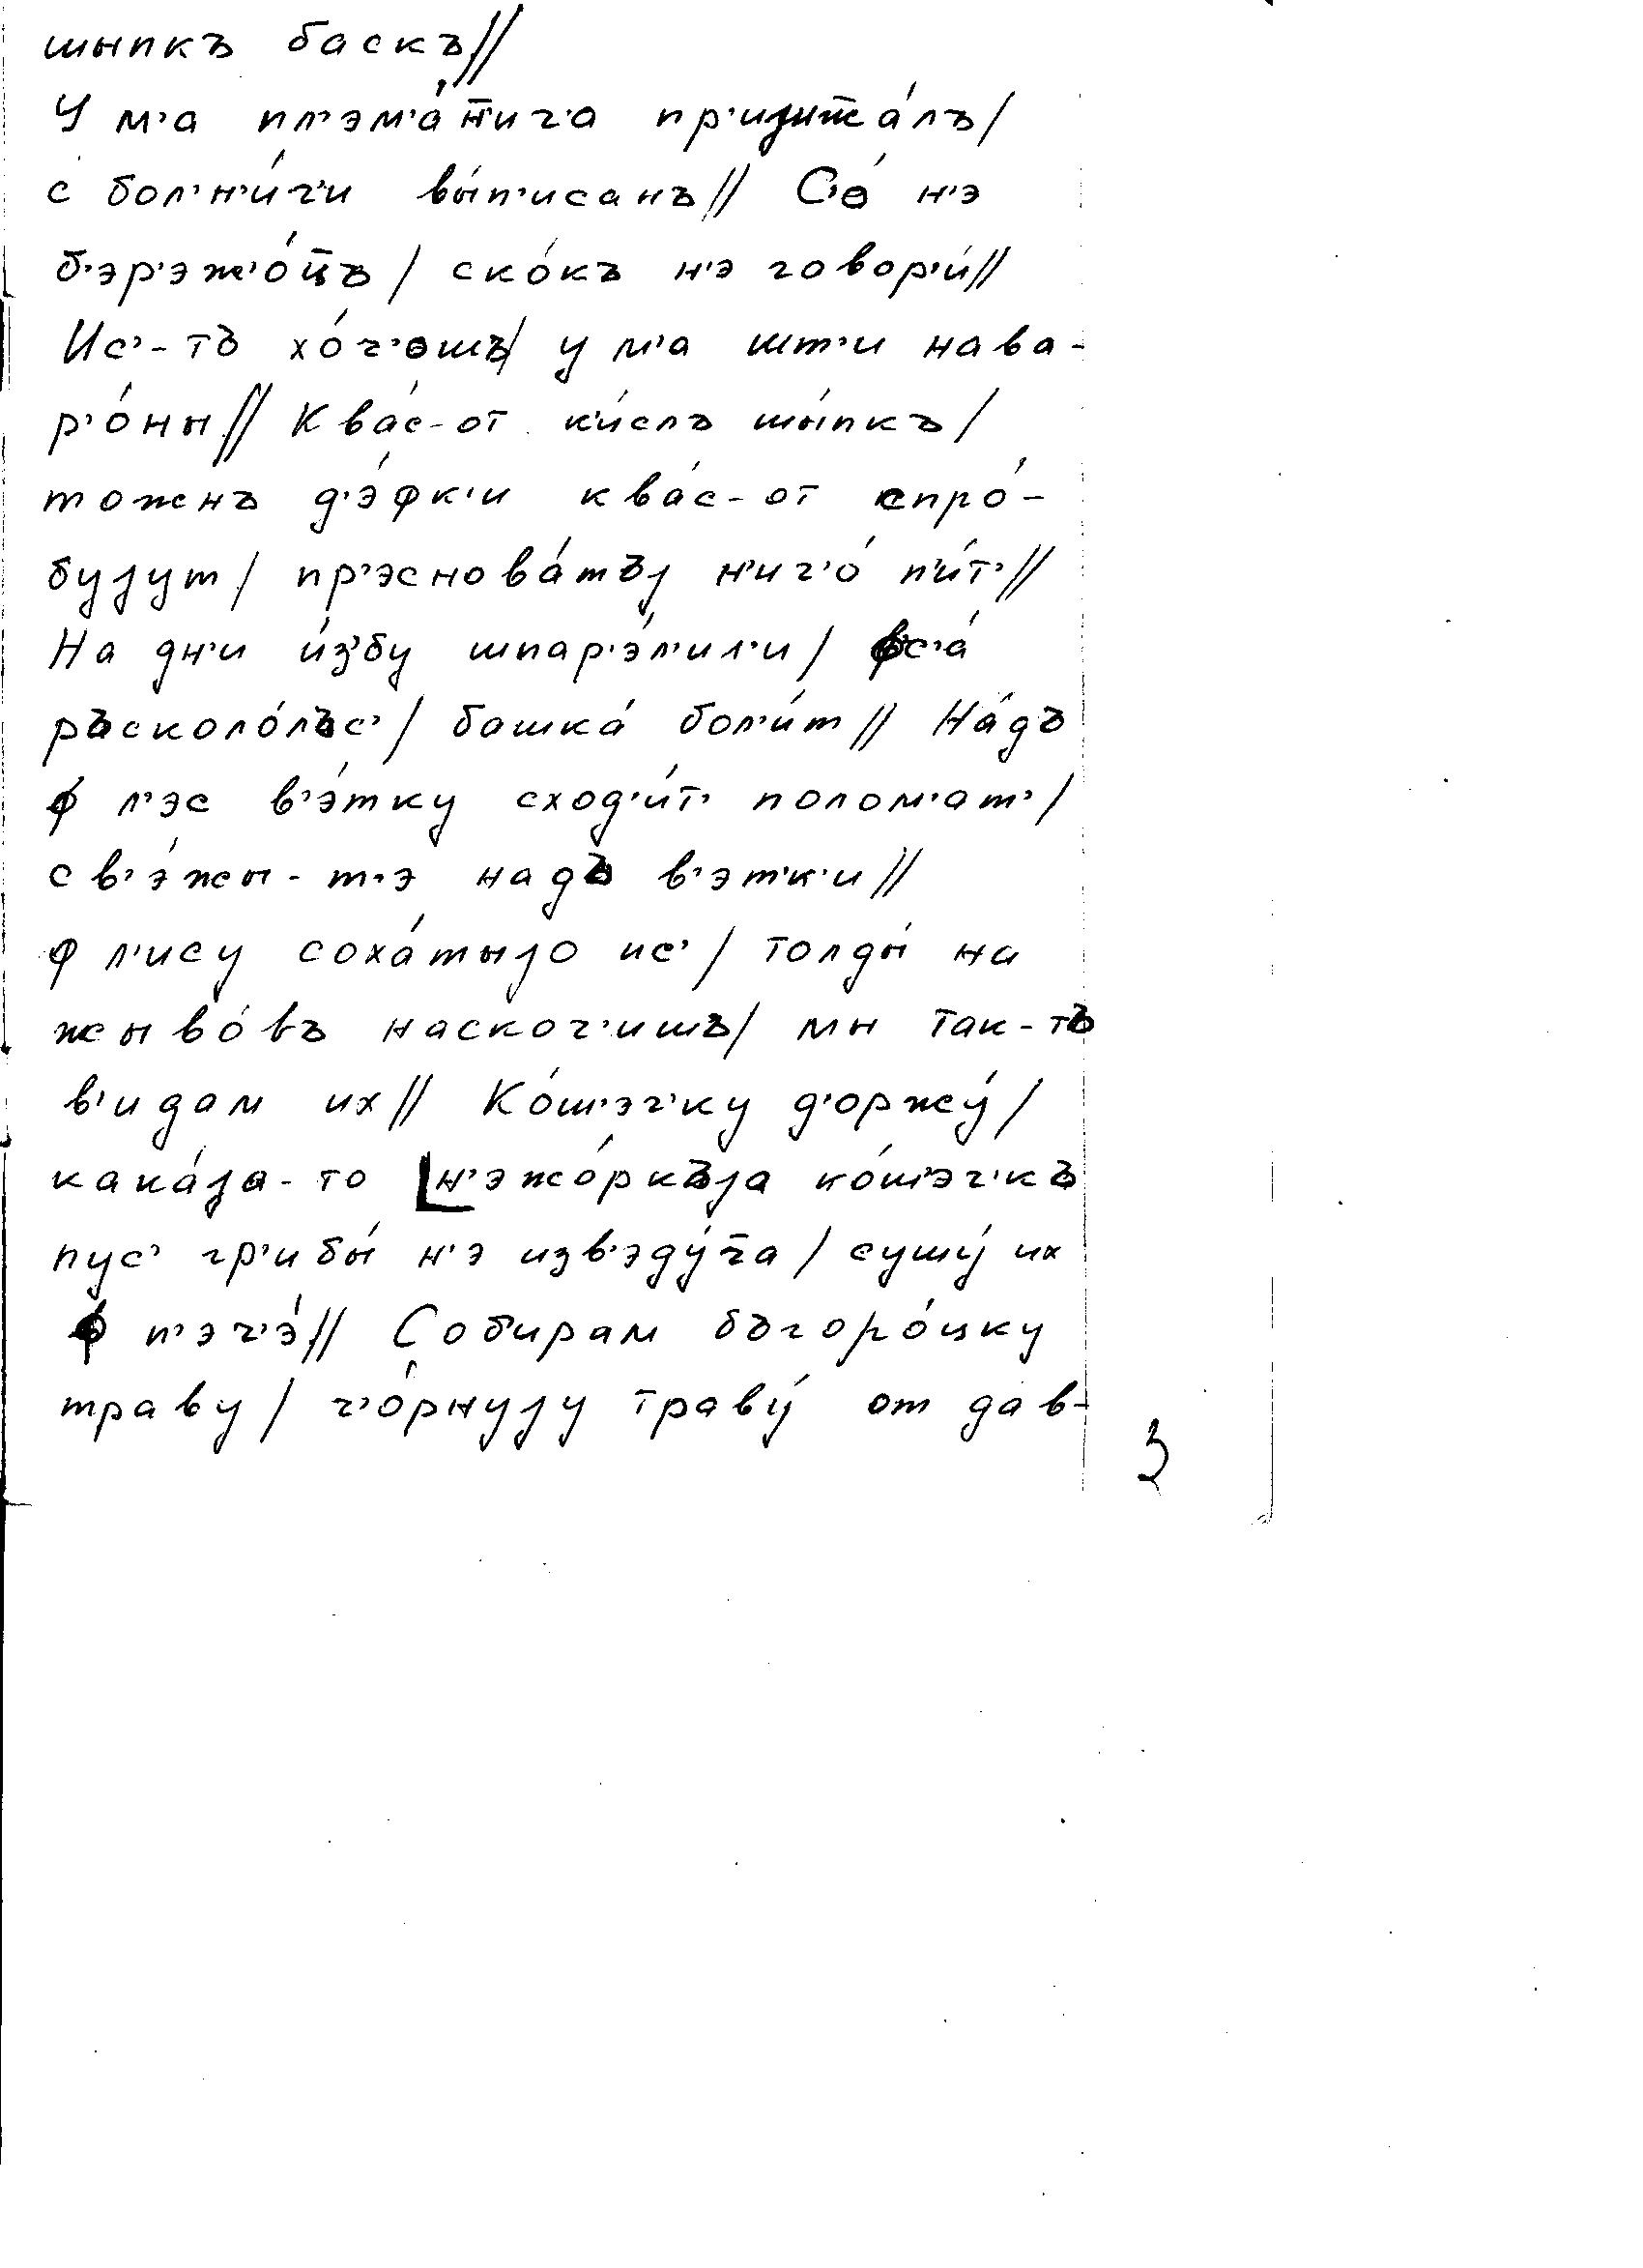 шыпкъ баскъ//
У м'а пл'эм'а́н̄'иц'а пр'ијижжа́лъ/
с бол'н'и́ц'и вы́п'исанъ// С'о́ н'э
б'эр'эж'о́ц̄ъ/ ско́къ н'э говор'и́//
Ис'-тъ хо́ч'ошъ/ у м'а шт'и нава-
р'о́ны// Ква́с-от к'и́слъ шы́пкъ/
тожнъ д'э́фк'и ква́с-от спро́-
бујут/ пр'эснова́тъј н'ич'о́ п'и́т'//
На дн'и и́збу шпар'э́л'ил'и/ фс'а́
ръсколо́лъс'/ башка́ бол'и́т// На́дъ
ф л'эс в'э́тку сход'и́т' полом'ат'/
св'э́жы-т'э надъ в'этк'и//
ф л'ису соха́тыјо ис'/ толды́ на
жыво́въ наскоч'ишъ/ мы так-тъ
в'идам их// Ко́ш'эч'ку д'оржу́/
кака́ја-то н'эжо́ркъја ко́ш'эч'къ
пус' гр'ибы́ н'э изв'эду́ца/ сушу́ их
ф п'эч'э́// Соб'ирам бъгоро́цку
траву/ ч'о́рнују траву́ от дав-
3